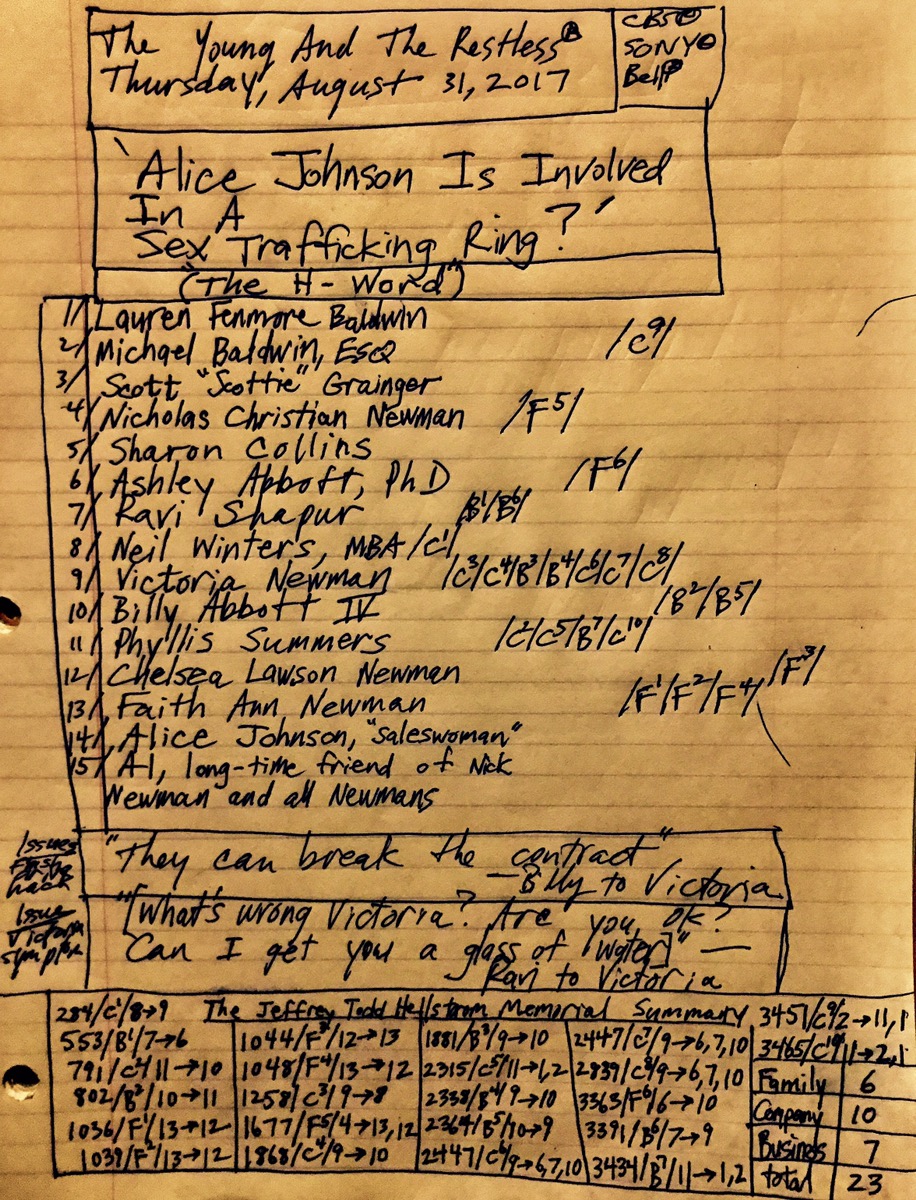 The Young And The Restless®
Thursday, August 31, 2017
CBS©
SONY©
Bell®
'Alice Johnson Is Involved
In A
Sex Trafficking Ring?'
("The H-Word")
1/ Lauren Fenmore Baldwin
2/ Michael Baldwin, ESQ /C⁹/
3/ Scott "Scottie" Grainger
4/ Nicholas Christian Newman /F⁵/
5/ Sharon Collins
6/ Ashley Abbott, PhD /F⁶/
7/ Ravi Shapur /B¹/B⁶/
8/ Neil Winters, MBA /C¹/
9/ Victoria Newman /C³/C⁴/B³/B⁴/C⁶/C⁷/C⁸/
10/ Billy Abbott IV /B²/B⁵/
11/ Phyllis Summers /C²/C⁵/B⁷/C¹⁰/
12/ Chelsea Lawson Newman /F³/
13/ Faith Ann Newman /F¹/F²/F⁴/
14/ Alice Johnson, "saleswoman"
15/ Al, long-time friend of Nick
Newman and all Newmans
Issues
hack
"They can break the contract"
—Billy to Victoria
Issue
Victoria
"[What's wrong Victoria? Are you ok?
Can I get you a glass of water]" —
Ravi to Victoria
284/C¹/8→9 The Jeffrey Todd Hellstrom Memorial Summary 3457/C⁹/2→11,1
553/B¹/7→6 1044/F³/12→13 1881/B³/9→10 2447/C⁷/9→6,7,10 3465/C¹⁰/11→2,1
791/C²/11→10 1048/F⁴/13→12 2315/C⁵/11→1,2 2839/C⁸/9→6,7,10 Family 6
802/B²/10→11 1258/C³/9→8 2338/B⁴/9→10 3363/F⁶/6→10 Company 10
1036/F¹/13→12 1677/F⁵/4→13,12 2364/B⁵/10→9 3391/B⁶/7→9 Business 7
1039/F²/13→12 1868/C⁴/9→10 2447/C⁶/9→6,7,10 3434/B⁷/11→1,2 total 23